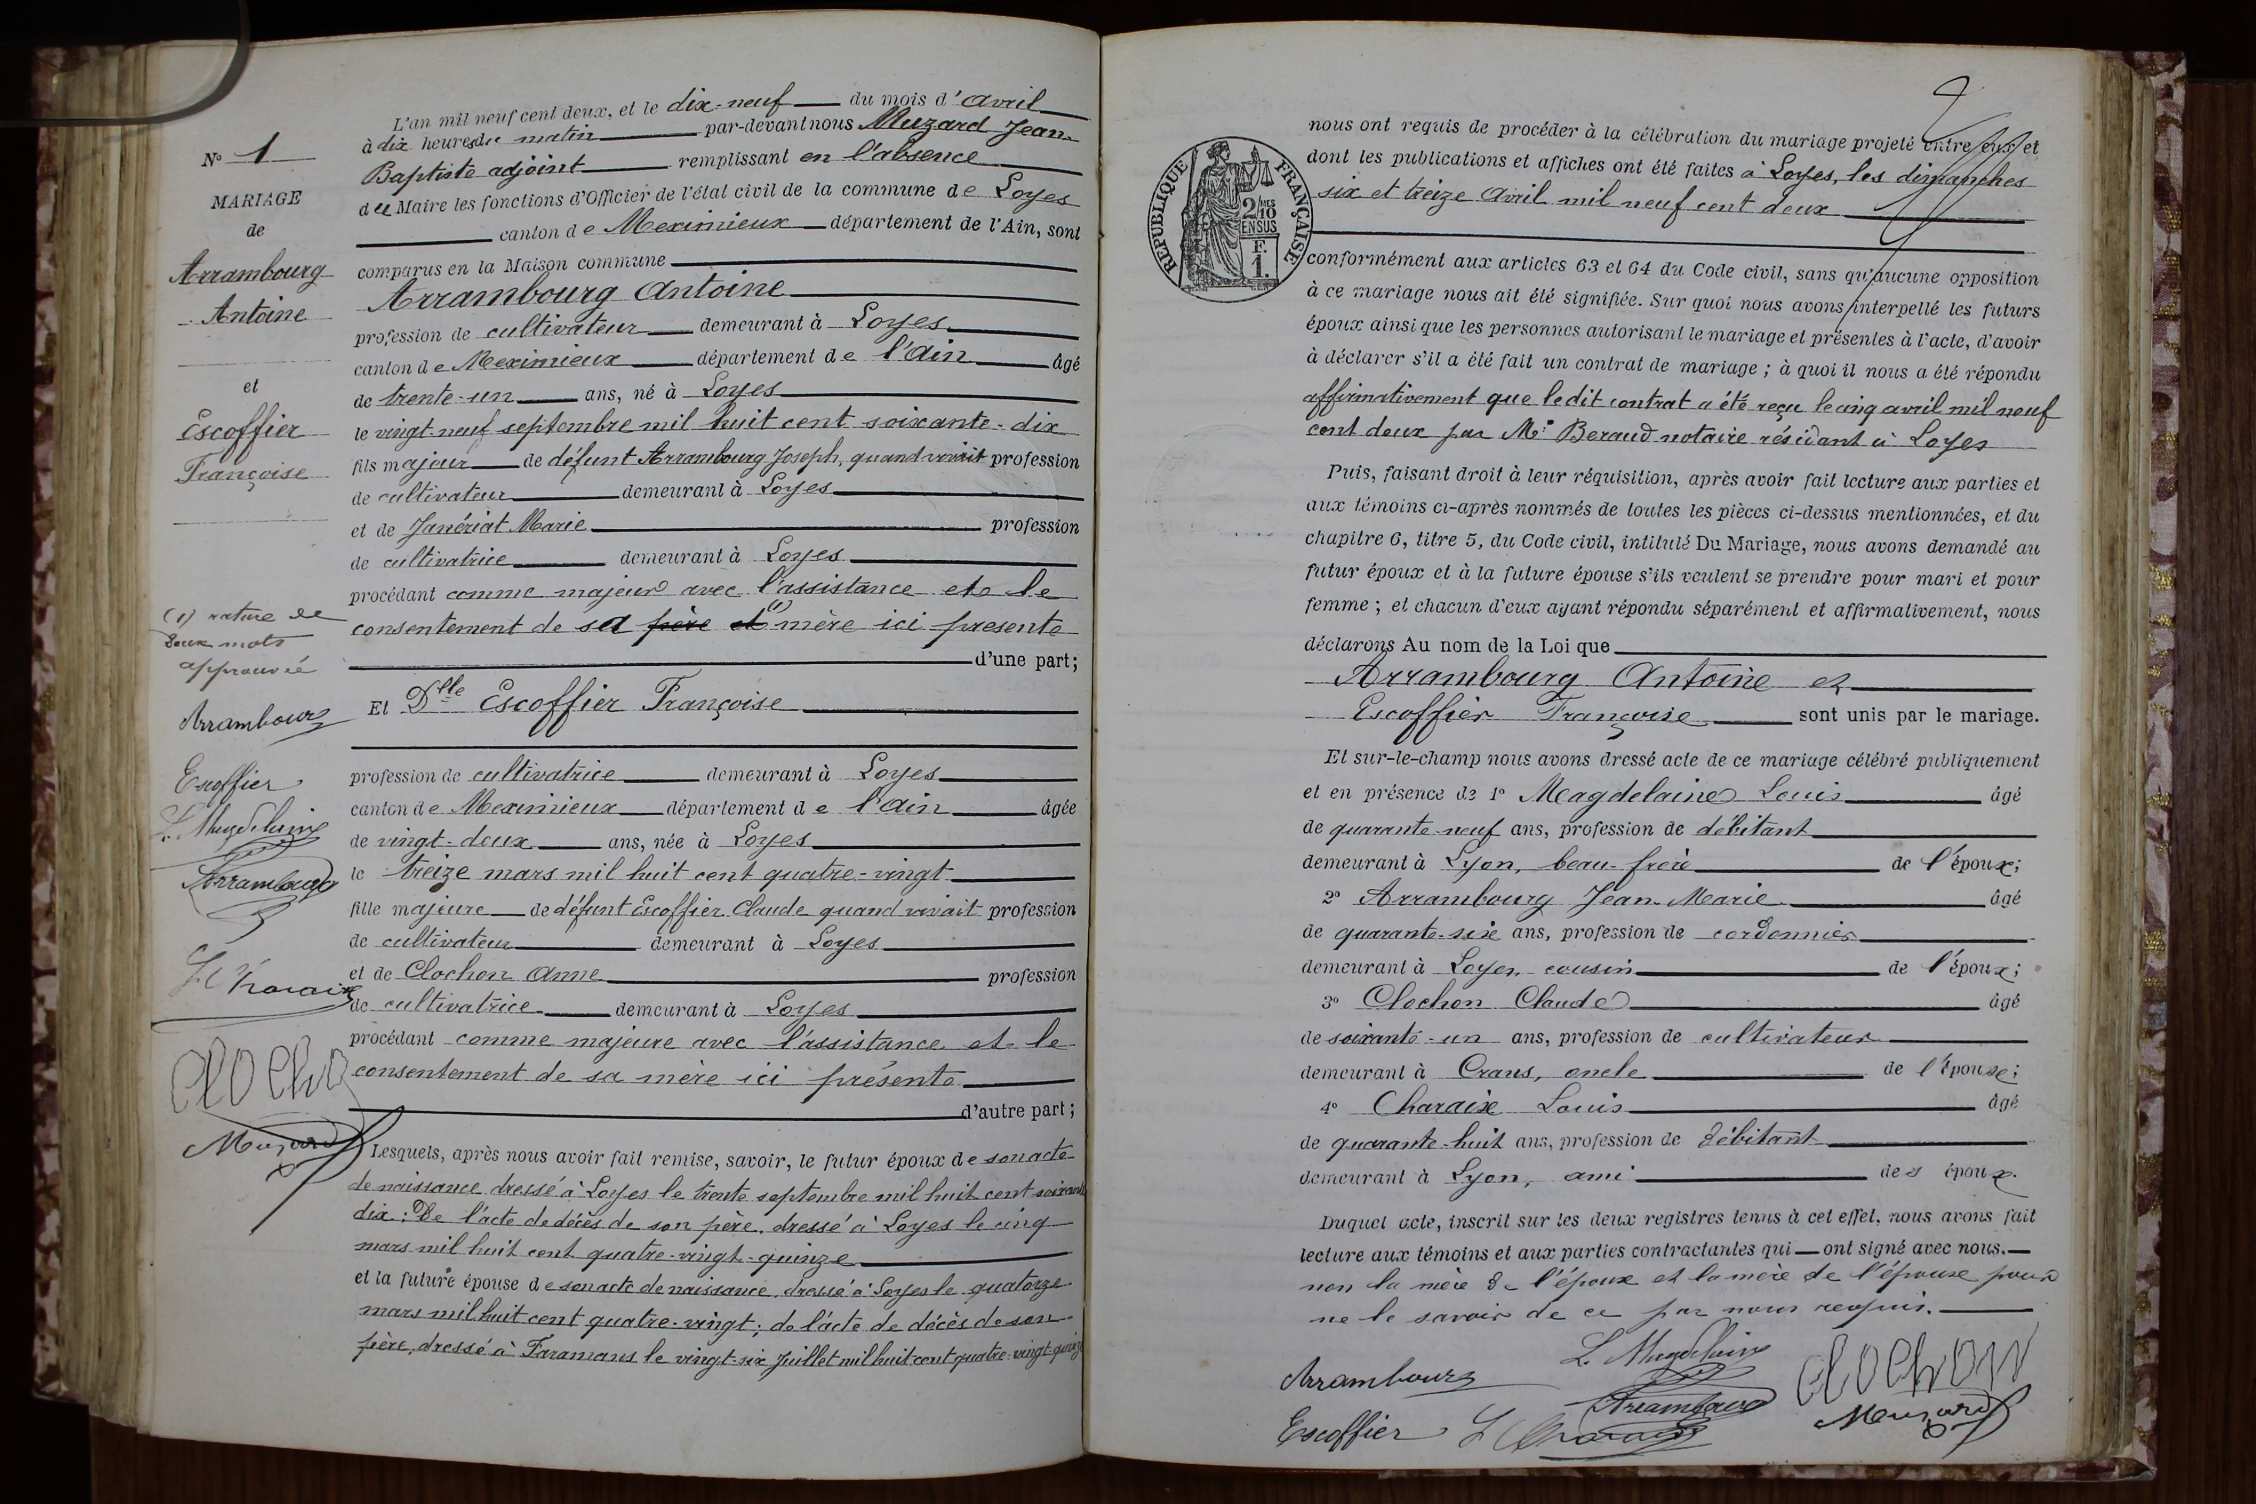 N° 1
MARIAGE
de
Arrambourg
Antoine
et
Escoffier
Françoise
(1) rature de
deux mots
approuvée
Arrambourg
Escoffier
L. Magdelaine
Arrambourg
L Charaix
Clochon
Muzard
L'an mil neuf cent deux, et le dix-neuf du mois d'avril
à dix heures du matin par-devant nous Muzard Jean
Baptiste adjoint remplissant en l'absence
du Maire les fonctions d'Officier de l'état civil de la commune de Loyes
canton de Meximieux département de l'Ain, sont
comparus en la Maison commune
Arrambourg Antoine
profession de cultivateur demeurant à Loyes
canton de Meximieux département de l'Ain âgé
de trente-un ans, né à Loyes
le vingt-neuf septembre mil huit cent soixante-dix
fils majeur de défunt Arrambourg Joseph, quand vivait profession
de cultivateur demeurant à Loyes
et de Janériat Marie profession
de cultivatrice demeurant à Loyes
procédant comme majeur avec l'assistance et le
consentement de sa père et (1) mère ici présente
d'une part;
Et Dlle Escoffier Françoise
profession de cultivatrice demeurant à Loyes
canton de Meximieux département de l'Ain âgée
de vingt-deux ans, née à Loyes
le treize mars mil huit cent quatre-vingt
fille majeure de défunt Escoffier Claude quand vivait profession
de cultivateur demeurant à Loyes
et de Clochon Anne profession
de cultivatrice demeurant à Loyes
procédant comme majeure avec l'assistance et le
consentement de sa mère ici présente
d'autre part;
Lesquels, après nous avoir fait remise, savoir, le futur époux de son acte
de naissance dressé à Loyes le trente septembre mil huit cent soixante
dix; De l'acte de décès de son père, dressé à Loyes le cinq
mars mil huit cent quatre-vingt-quinze
et la future épouse de son acte de naissance, dressé à Loyes le quatorze
mars mil huit cent quatre-vingt; de l'acte de décès de son
père, dressé à Faramans le vingt-six Juillet mil huit cent quatre-vingt-quinze
RÉPUBLIQUE FRANÇAISE
2/10 MES
EN SUS
F.
1.
nous ont requis de procéder à la célébration du mariage projeté entre eux et
dont les publications et affiches ont été faites à Loyes, les dimanches
six et treize avril mil neuf cent deux
conformément aux articles 63 et 64 du Code civil, sans qu'aucune opposition
à ce mariage nous ait été signifiée. Sur quoi nous avons interpellé les futurs
époux ainsi que les personnes autorisant le mariage et présentes à l'acte, d'avoir
à déclarer s'il a été fait un contrat de mariage; à quoi il nous a été répondu
affirmativement que ledit contrat a été reçu le cinq avril mil neuf
cent deux par Me Beraud notaire résidant à Loyes
Puis, faisant droit à leur réquisition, après avoir fait lecture aux parties et
aux témoins ci-après nommés de toutes les pièces ci-dessus mentionnées, et du
chapitre 6, titre 5, du Code civil, intitulé Du Mariage, nous avons demandé au
futur époux et à la future épouse s'ils veulent se prendre pour mari et pour
femme; et chacun d'eux ayant répondu séparément et affirmativement, nous
déclarons Au nom de la Loi que
Arrambourg Antoine et
Escoffier Françoise sont unis par le mariage.
Et sur-le-champ nous avons dressé acte de ce mariage célébré publiquement
et en présence de 1° Magdelaine Louis âgé
de quarante-neuf ans, profession de débitant
demeurant à Lyon, beau-frère de l'époux;
2° Arrambourg Jean-Marie âgé
de quarante-six ans, profession de cordonnier
demeurant à Loyes, cousin de l'époux;
3° Clochon Claude âgé
de soixante-un ans, profession de cultivateur
demeurant à Crans, oncle de l'épouse;
4° Charaix Louis âgé
de quarante-huit ans, profession de débitant
demeurant à Lyon, ami des époux.
Duquel acte, inscrit sur les deux registres tenus à cet effet, nous avons fait
lecture aux témoins et aux parties contractantes qui ont signé avec nous.
non la mère de l'époux et la mère de l'épouse pour
ne le savoir de ce par nous requis.
Arrambourg
L. Magdelaine
Clochon
Arrambourg
Muzard
Escoffier
L Charaix